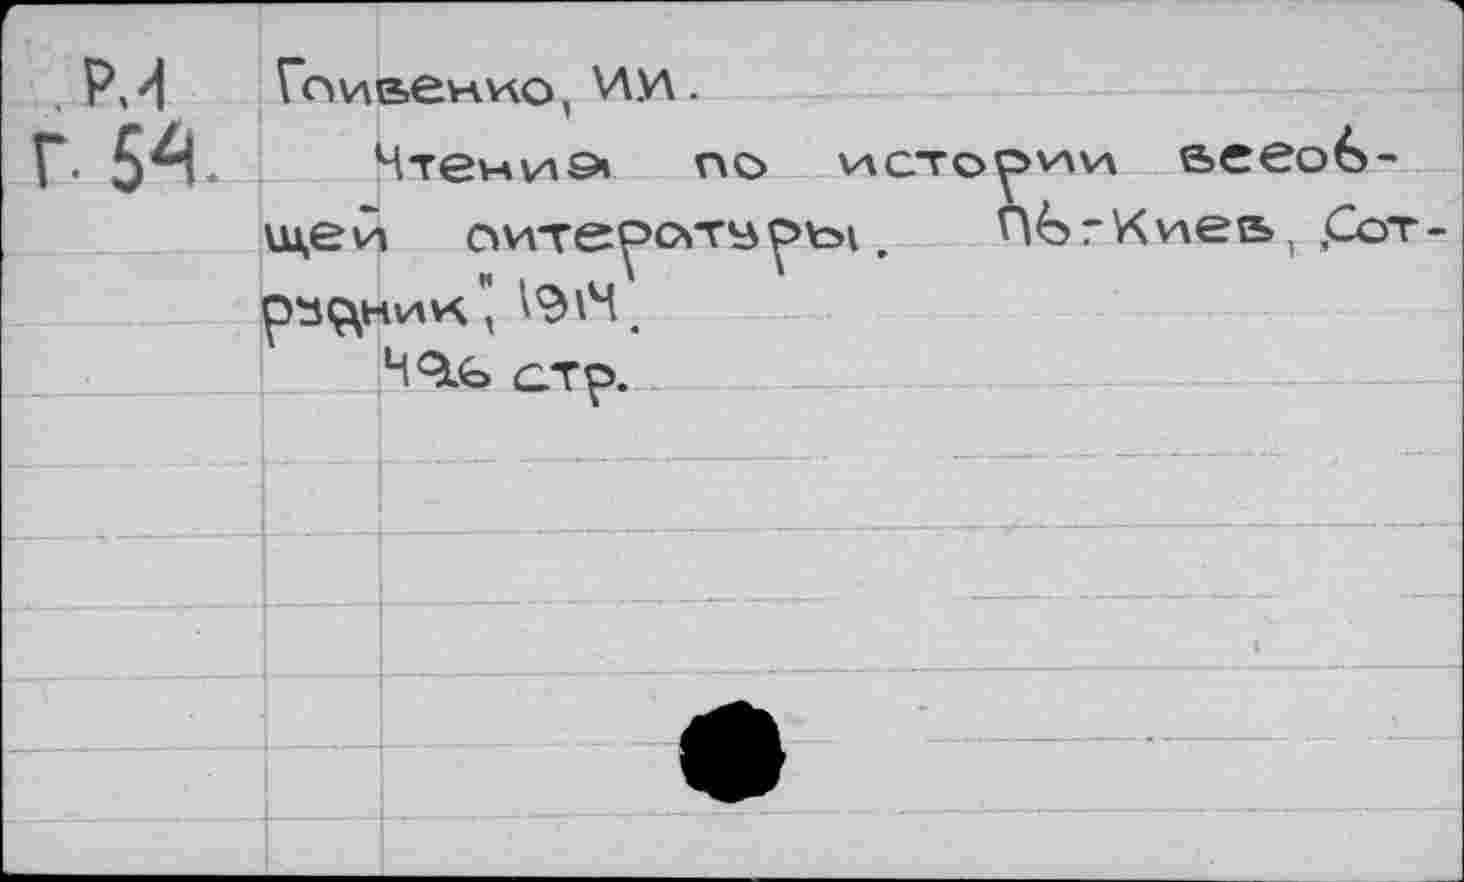 Р.1 Гливенко, ИИ.
Г. 54. Чтения по истории всеоб-
щей литературы. Пб-Киев, „Сот-
рудник", 1914.
стр.